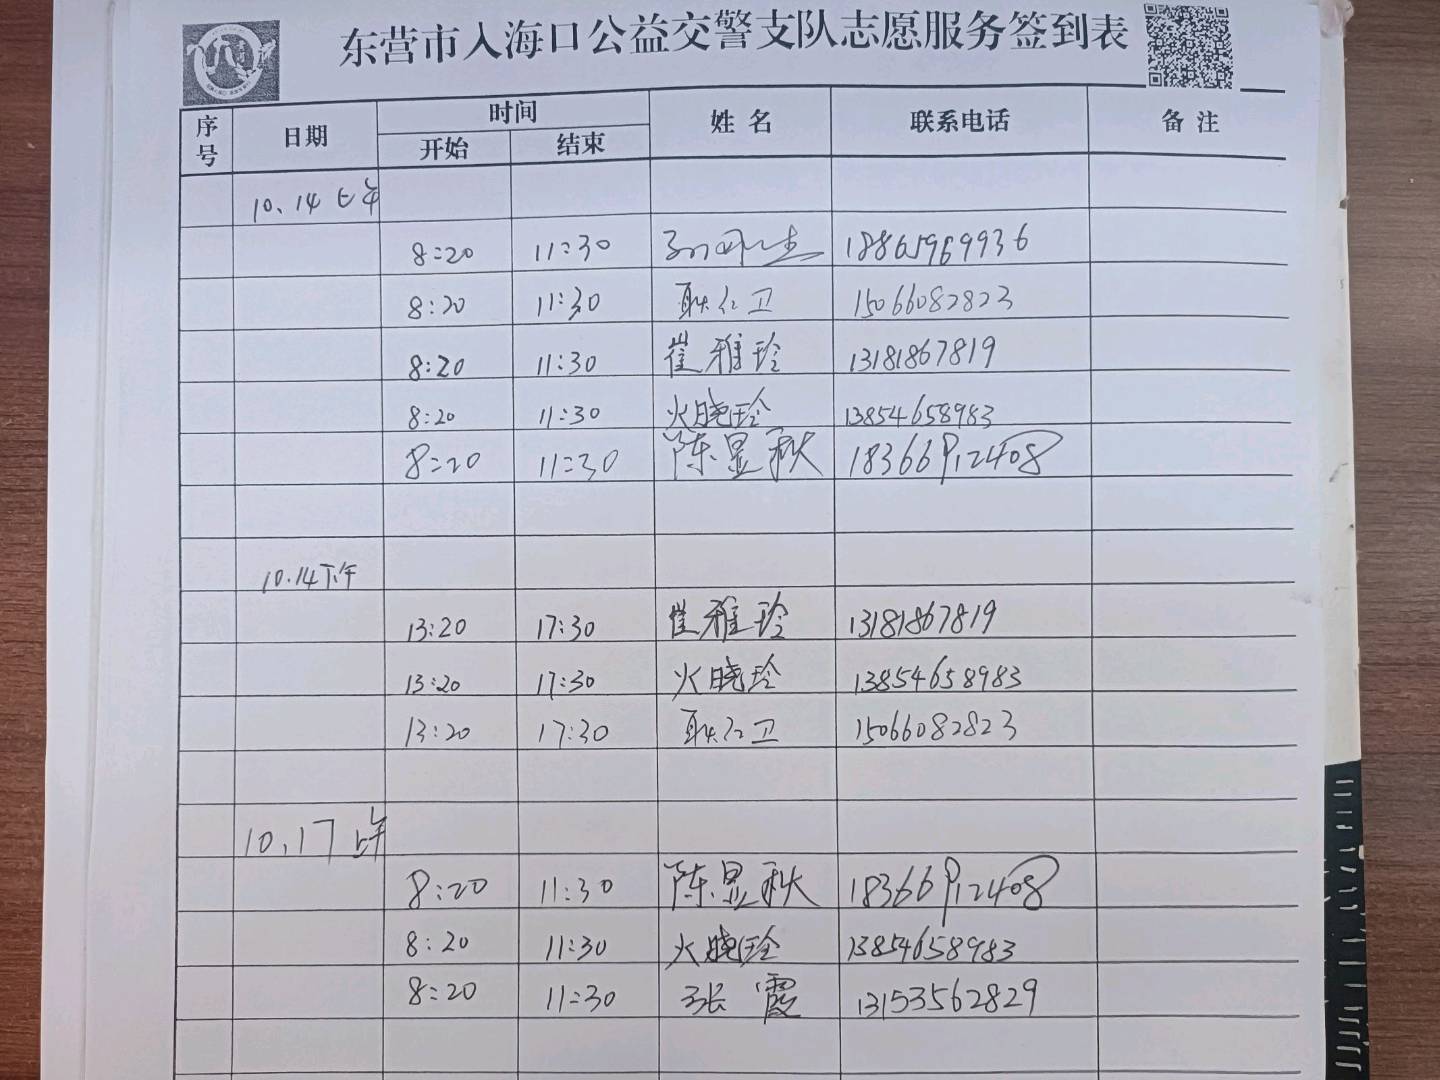 东营市入海口公益交警支队志愿服务签到表
序号 日期 时间 姓名 联系电话 备注
开始 结束
10.14上午
8:20 11:30 18865969936
8:20 11:30 耿仁卫 15066082823
8:20 11:30 崔雅玲 13181867819
8:20 11:30 火晓玲 13854658983
8:20 11:30 陈显秋 18366912408
10.14下午
13:20 17:30 崔雅玲 13181867819
13:20 17:30 火晓玲 13854658983
13:20 17:30 耿仁卫 15066082823
10.17上午
8:20 11:30 陈显秋 18366912408
8:20 11:30 火晓玲 13854658983
8:20 11:30 张霞 13153562829